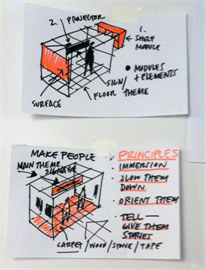 2. PROJECTOR
1.
SHELF
MODULE
• MODULES
+ ELEMENTS
SIGN/
FLOOR THEME
SURFACE
MAKE PEOPLE
MAIN THEME
SIGNAGE
PRINCIPLES
- IMMERSION
- SLOW THEM
DOWN
- ORIENT THEM
- TELL
GIVE THEM
STORIES
CARPET/WOOD/STONE/TAPE